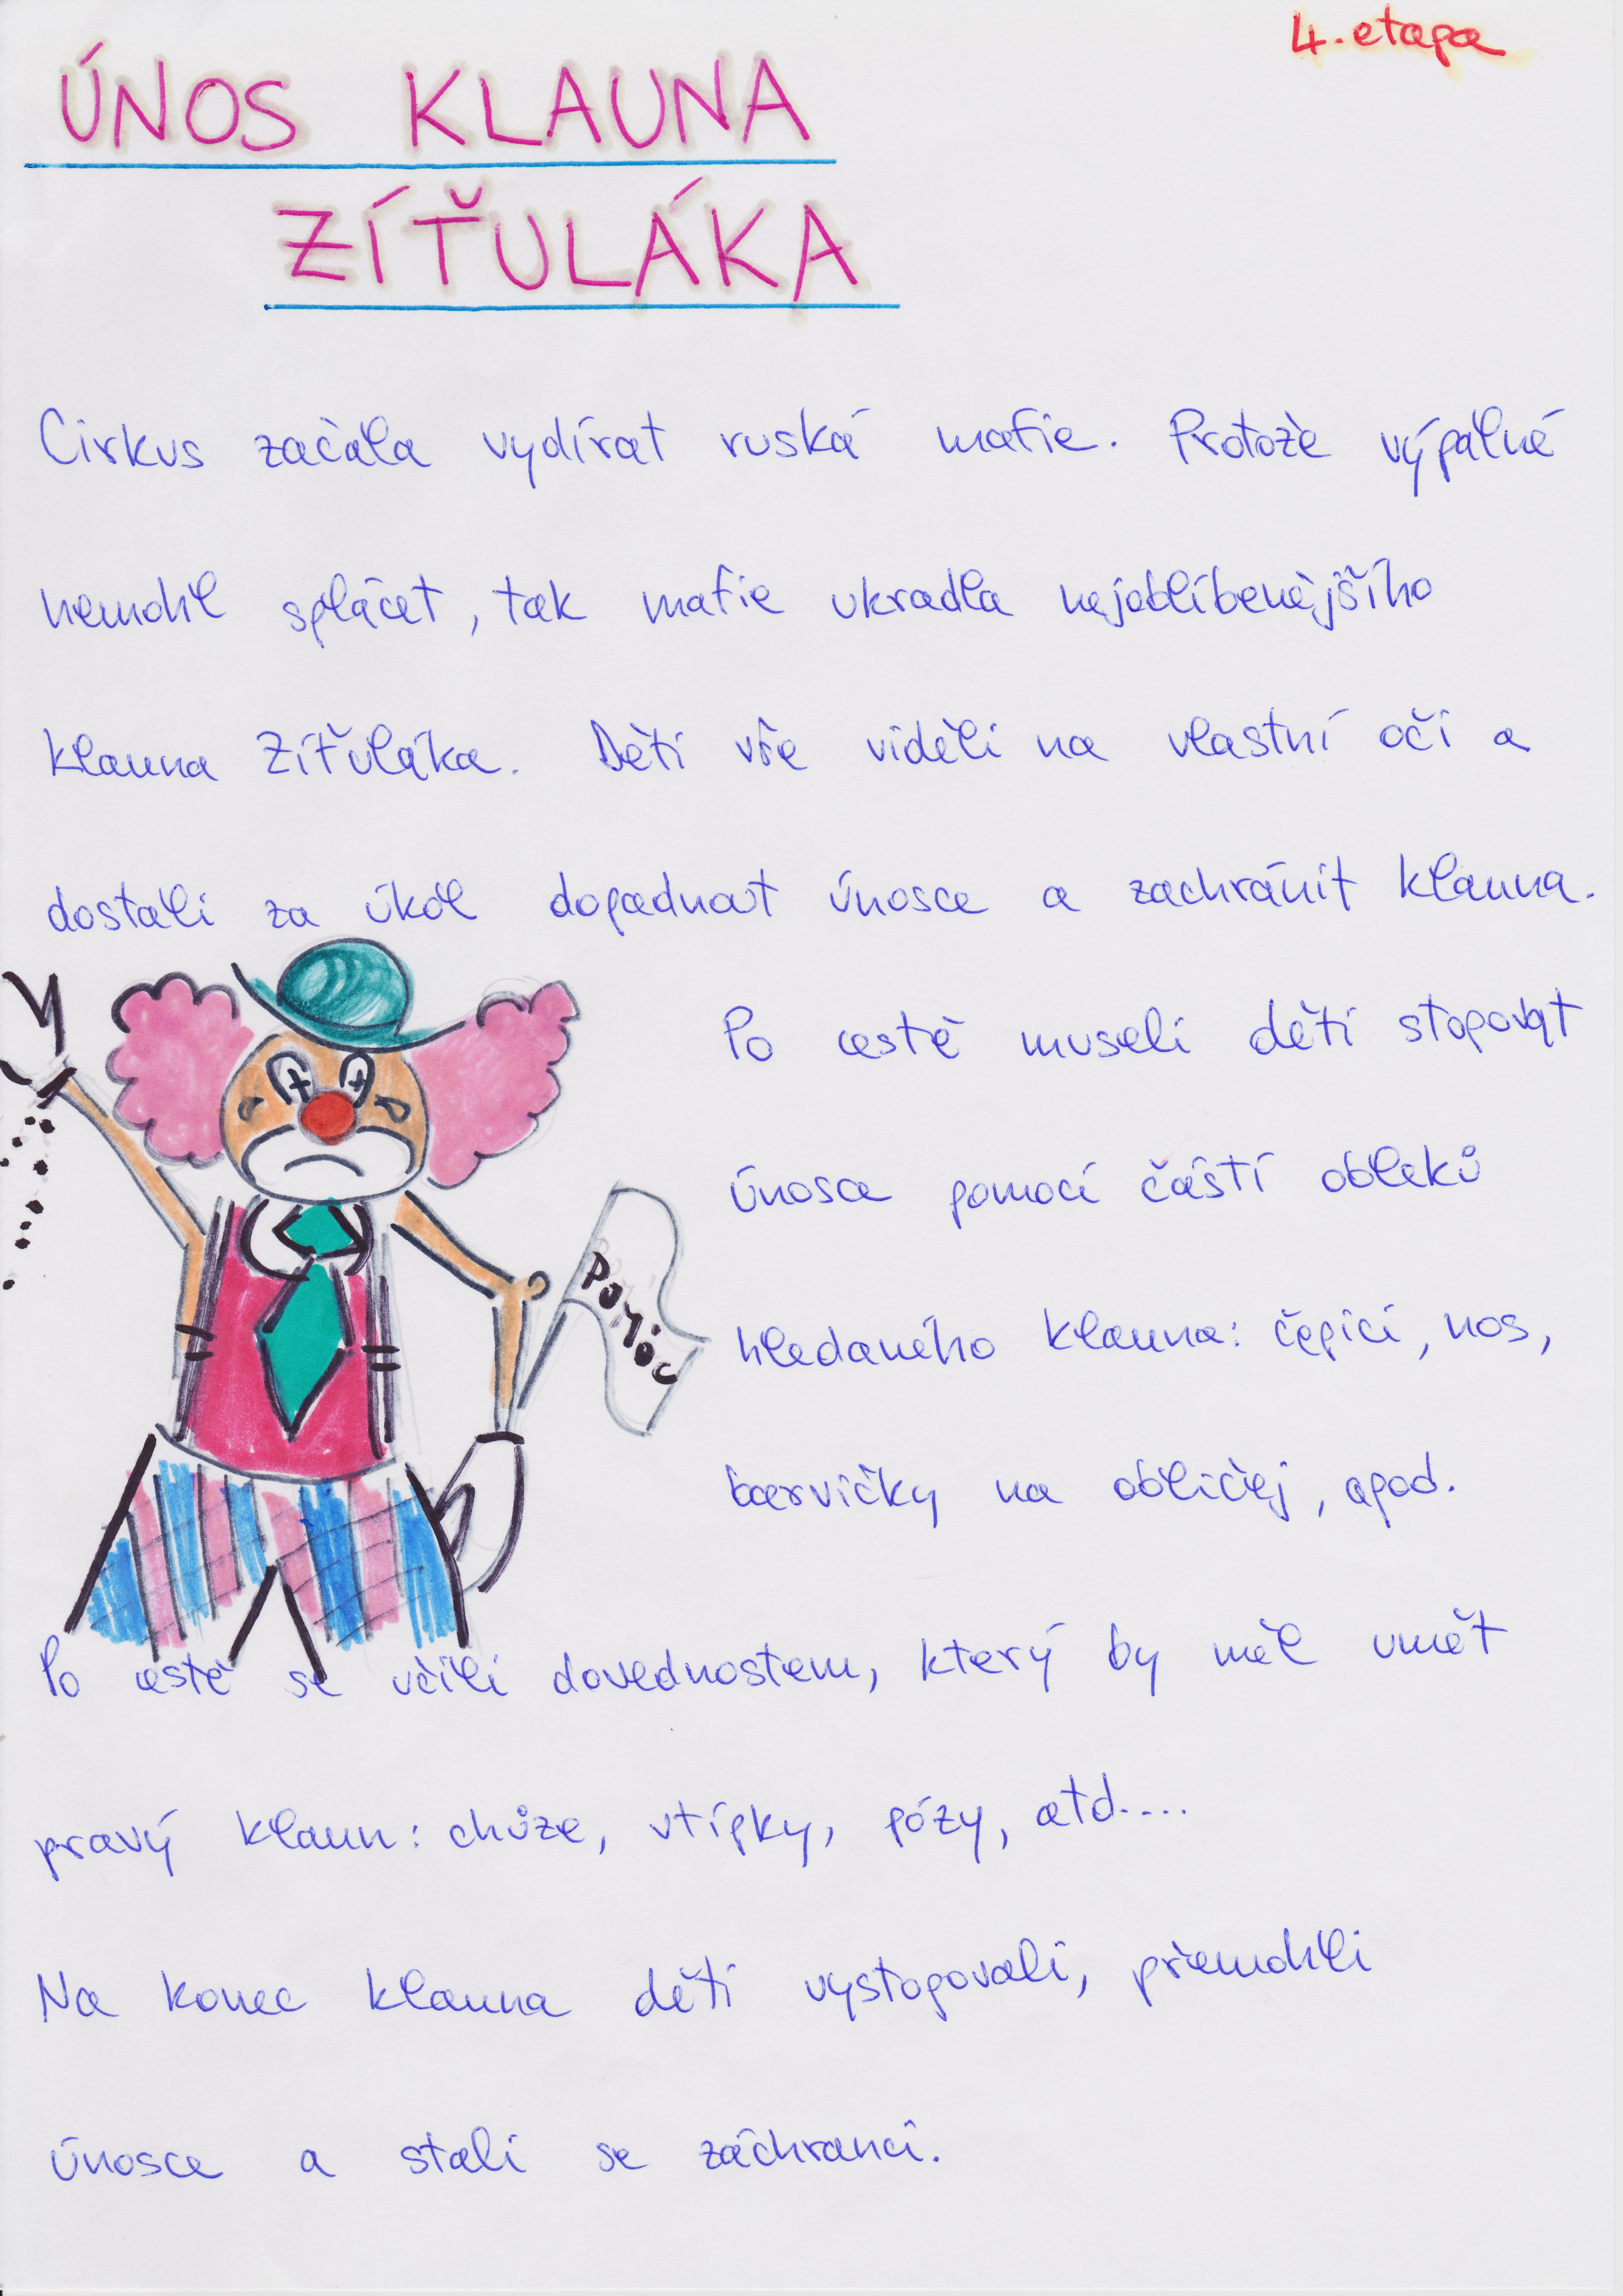 4. etapa
ÚNOS KLAUNA
ZÍŤULÁKA
Cirkus začala vydírat ruská mafie. Protože výpalné
nemohl splácet, tak mafie ukradla nejoblíbenějšího
klauna Zíťuláka. Děti vše viděli na vlastní oči a
dostali za úkol dopadnout únosce a zachránit klauna.
Po cestě museli děti stopovat
únosce pomocí částí obleků
hledaného klauna: čepici, nos,
barvičky na obličej, apod.
Pomóc
Po cestě se učili dovednostem, který by měl umět
pravý klaun: chůze, vtipky, pózy, atd....
Na konec klauna děti vystopovali, přemohli
únosce a stali se záchranci.